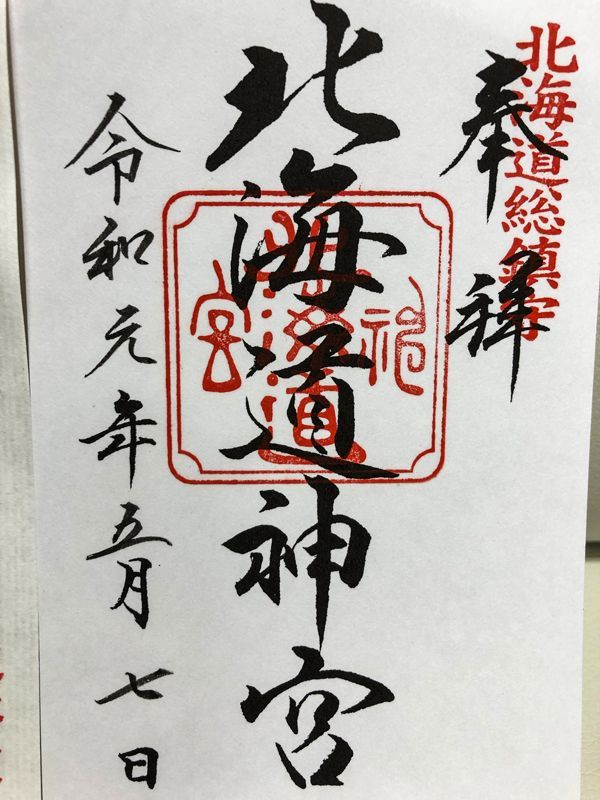 北海道総鎮守
奉拝
北海道神宮
北海道神宮
令和元年五月七日